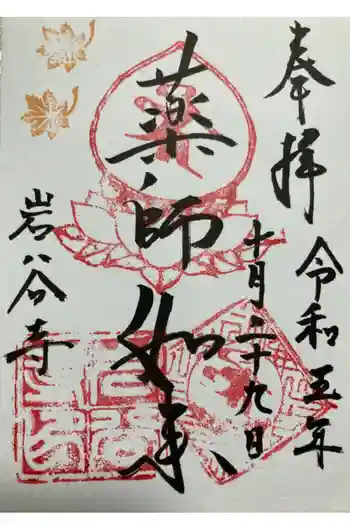 奉拝
令和五年
十月二十九日
薬師如来
岩谷寺